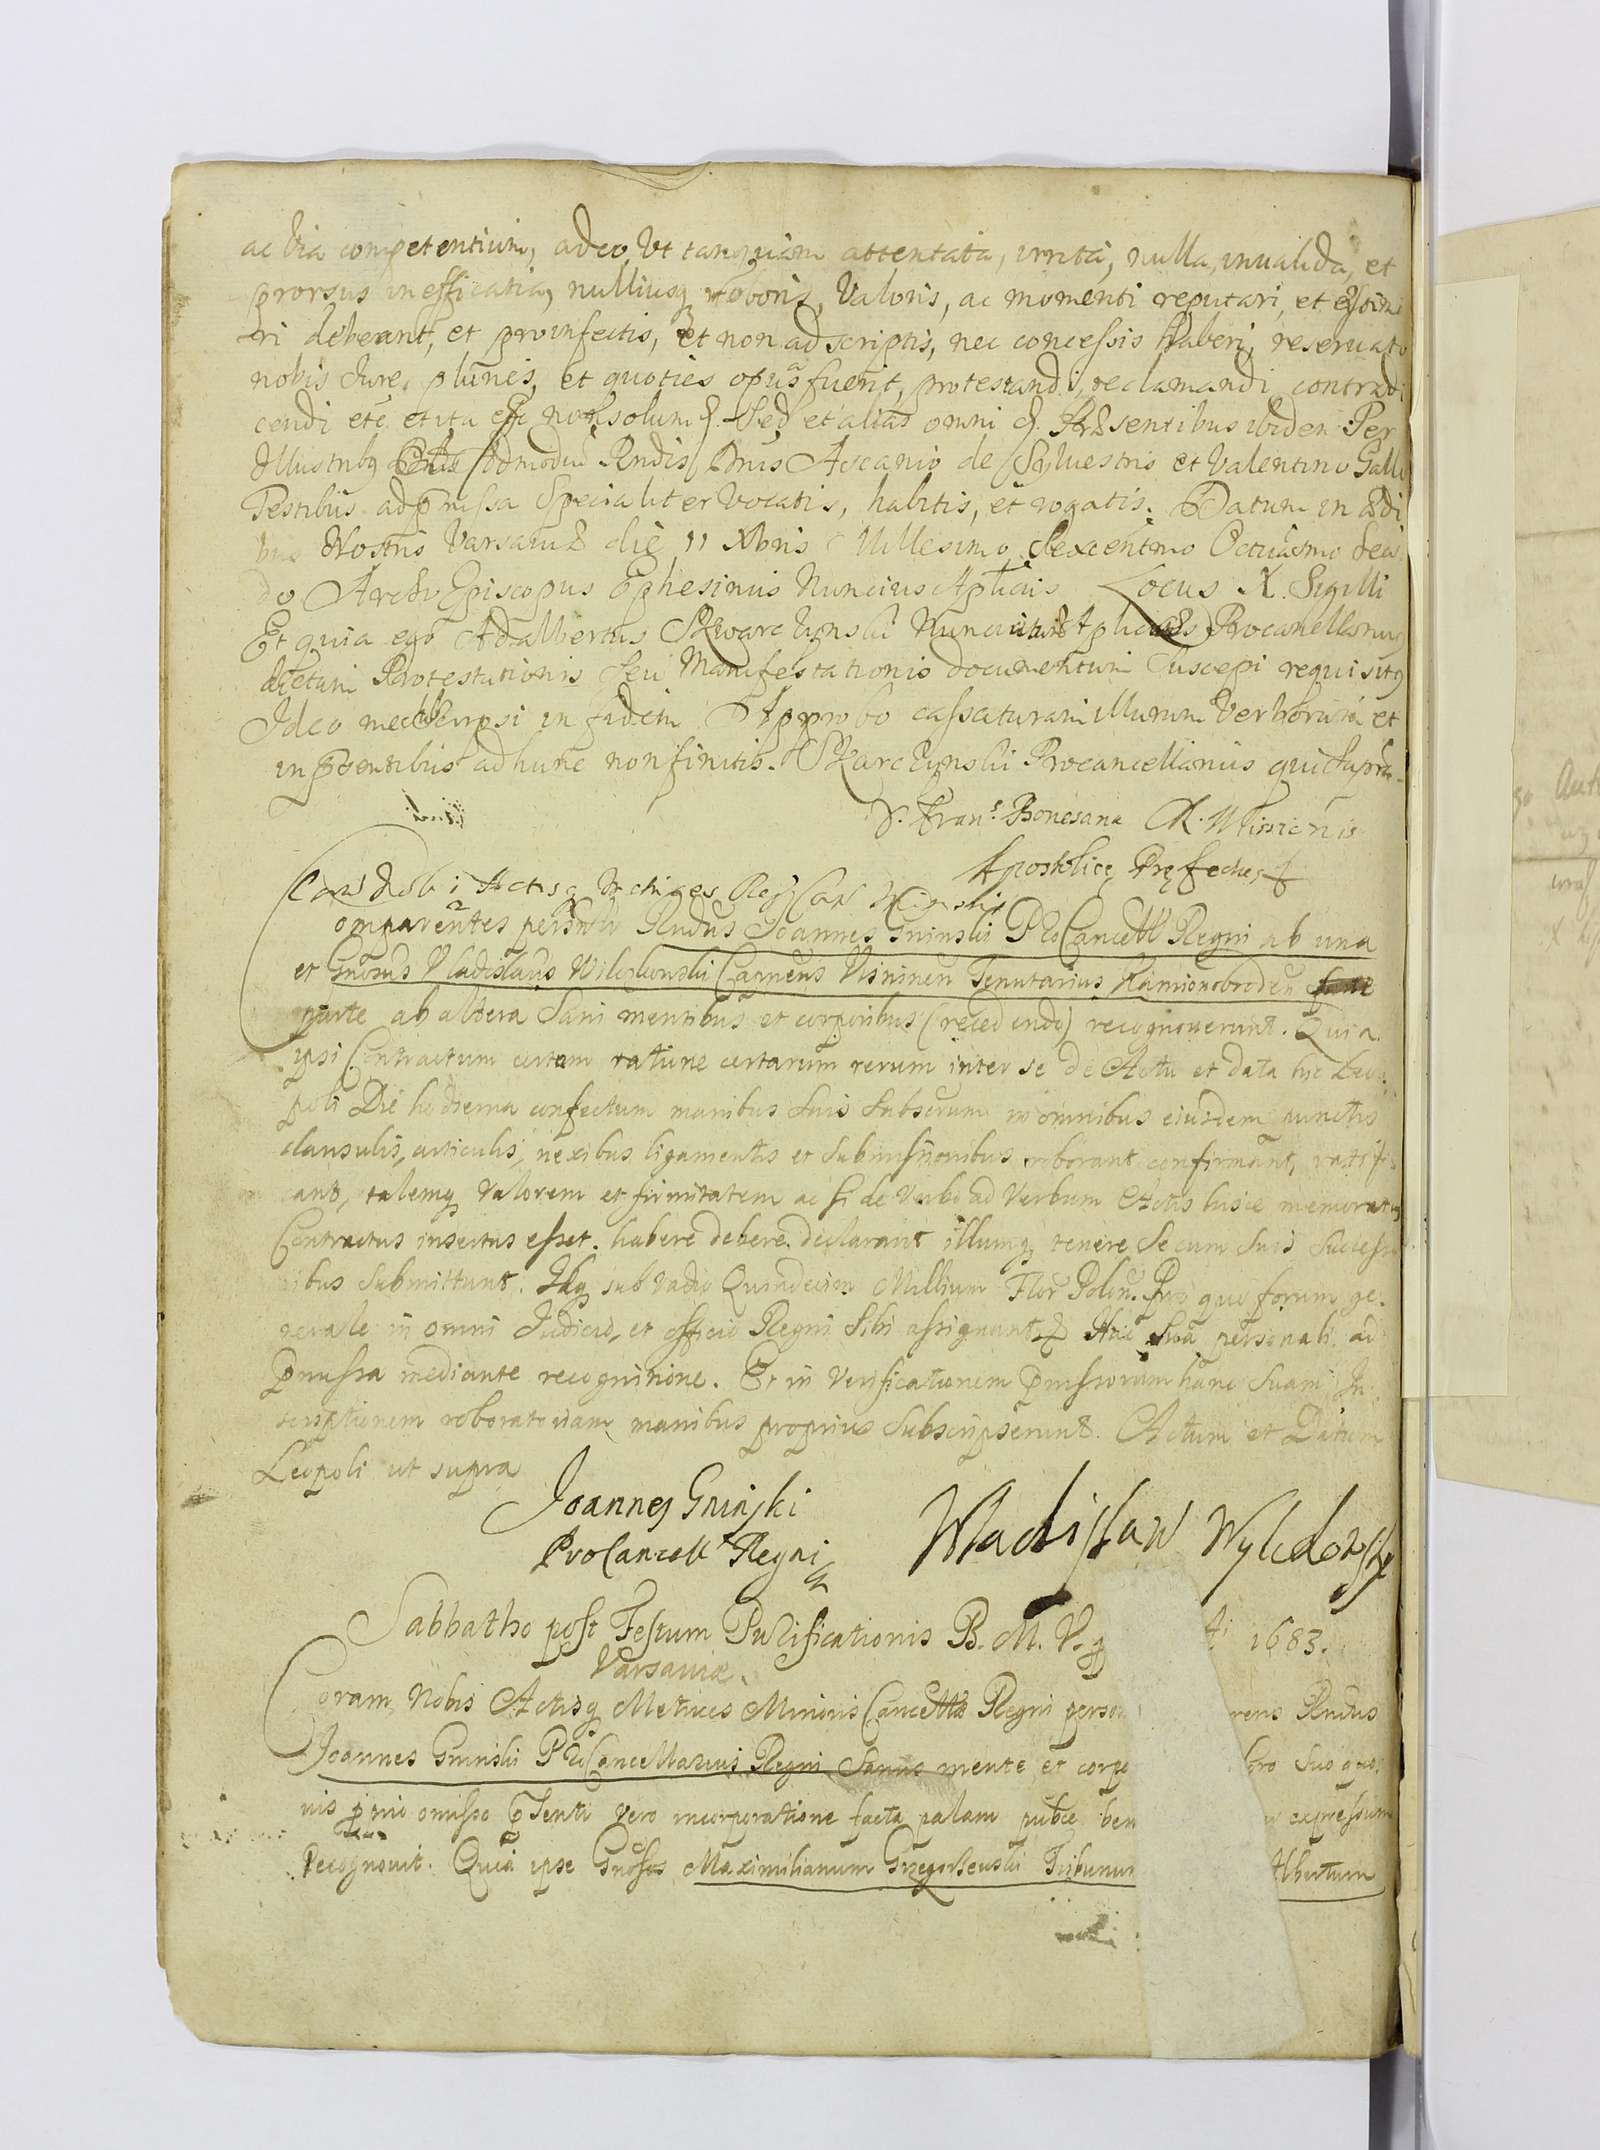 ac via competentium, adeo, Ut tanquam attentata, irrita, nulla, invalida, et
prorsus inefficatia, nulliusq roboris, Valoris, ac momenti reputari, et
ri debeant, et pro infectis, et non adscriptis, nec concessis haberi, reservato
nobis Iure, plúnes, et quoties opus fuerit, protestandi, reclamandi contradi
cendi etc. et ita non solum Sed et alias omni Præsentibus ibidem Per
Illustribq Admodu Rndis Dnis Ascanio de Syluestris et Valentino Galli
Testibus ad pmissa Specialiter Vocatis, habitis, et rogatis. Datum in Ædi
bus Nostris Varsaviæ die 11 Xbris Millesimo Sexcentmo Octuasmo Secū
do Archi Episcopus Ephesinus Nuncius Aplicus Locus X. Sigilli
Et quia ego Adalbertus Skwarczynski Aplicæ Procancellarius
dictam Protestationis Seu Manifestationis documentum Suscepi requisitq
Ideo me subscripsi in fidem Approbo cassaturam illurum Verborum et
in pntibus adhunc non finitis. Skarczynski Procancellarius qui supra
Fran.s Bonesana Cl. R. Missionis
Apostolice Pręfectus
Coram Nobi Actisq Metrices Regni Can
omparentes personlr Rndus Joannes Gninski ProCancell Regni ab una
et Gnosus Vladislaus Wilczkowski Capneus Visnineñ Tenutarius Kamionobrodeñ
parte ab altera Sani mentibus et corporibus (recedendo) recognoverunt. Quia
ipsi Contractum certum ratione certarum rerum inter se de Actu et data hic Leo
poli Die hodierna confectum manibus suis subscrum in omnibus eiusdem punctis
clausulis, articulis, nexibus ligamentis et submissionibus roborant confirmant, ratifi
cant, talemq valorem et firmitatem ac si de Verbo ad Verbum Actis hisce memoratq
Contractus insertus esset. habere debere declarant illumq tenere se cum suis Successo
ribus submittunt. Idq sub vadio Quindecim Millium Flor Polon. Pro quo forum ge
nerale in omni Judicio, et officio Regni Sibi assignant Hac sua personali ad
pmissa mediante recognitione. Et in Verificationem pmissorum hanc Suam In
scriptionem roboratoriam manibus propriis Subscripserunt. Actum et Datum
Leopoli ut supra
Joannes Gninski
ProCancell Regni
Wladislaw
Sabbatho post Festum Purificationis B. M. V. 1683.
Varsaviæ.
Coram Nobis Actisq Metrices Minoris Cancellæ Regni perso rens Rndus
Joannes Gninski ProCancellarius Regni Sanus mente et corpo ro suo
nis pprio omisso pSenti vero incorporatione facta palam publce ben expressum
recognovit. Quia ipse Gnosos Maximilianum Grzegorzewski Tribunum Albertum